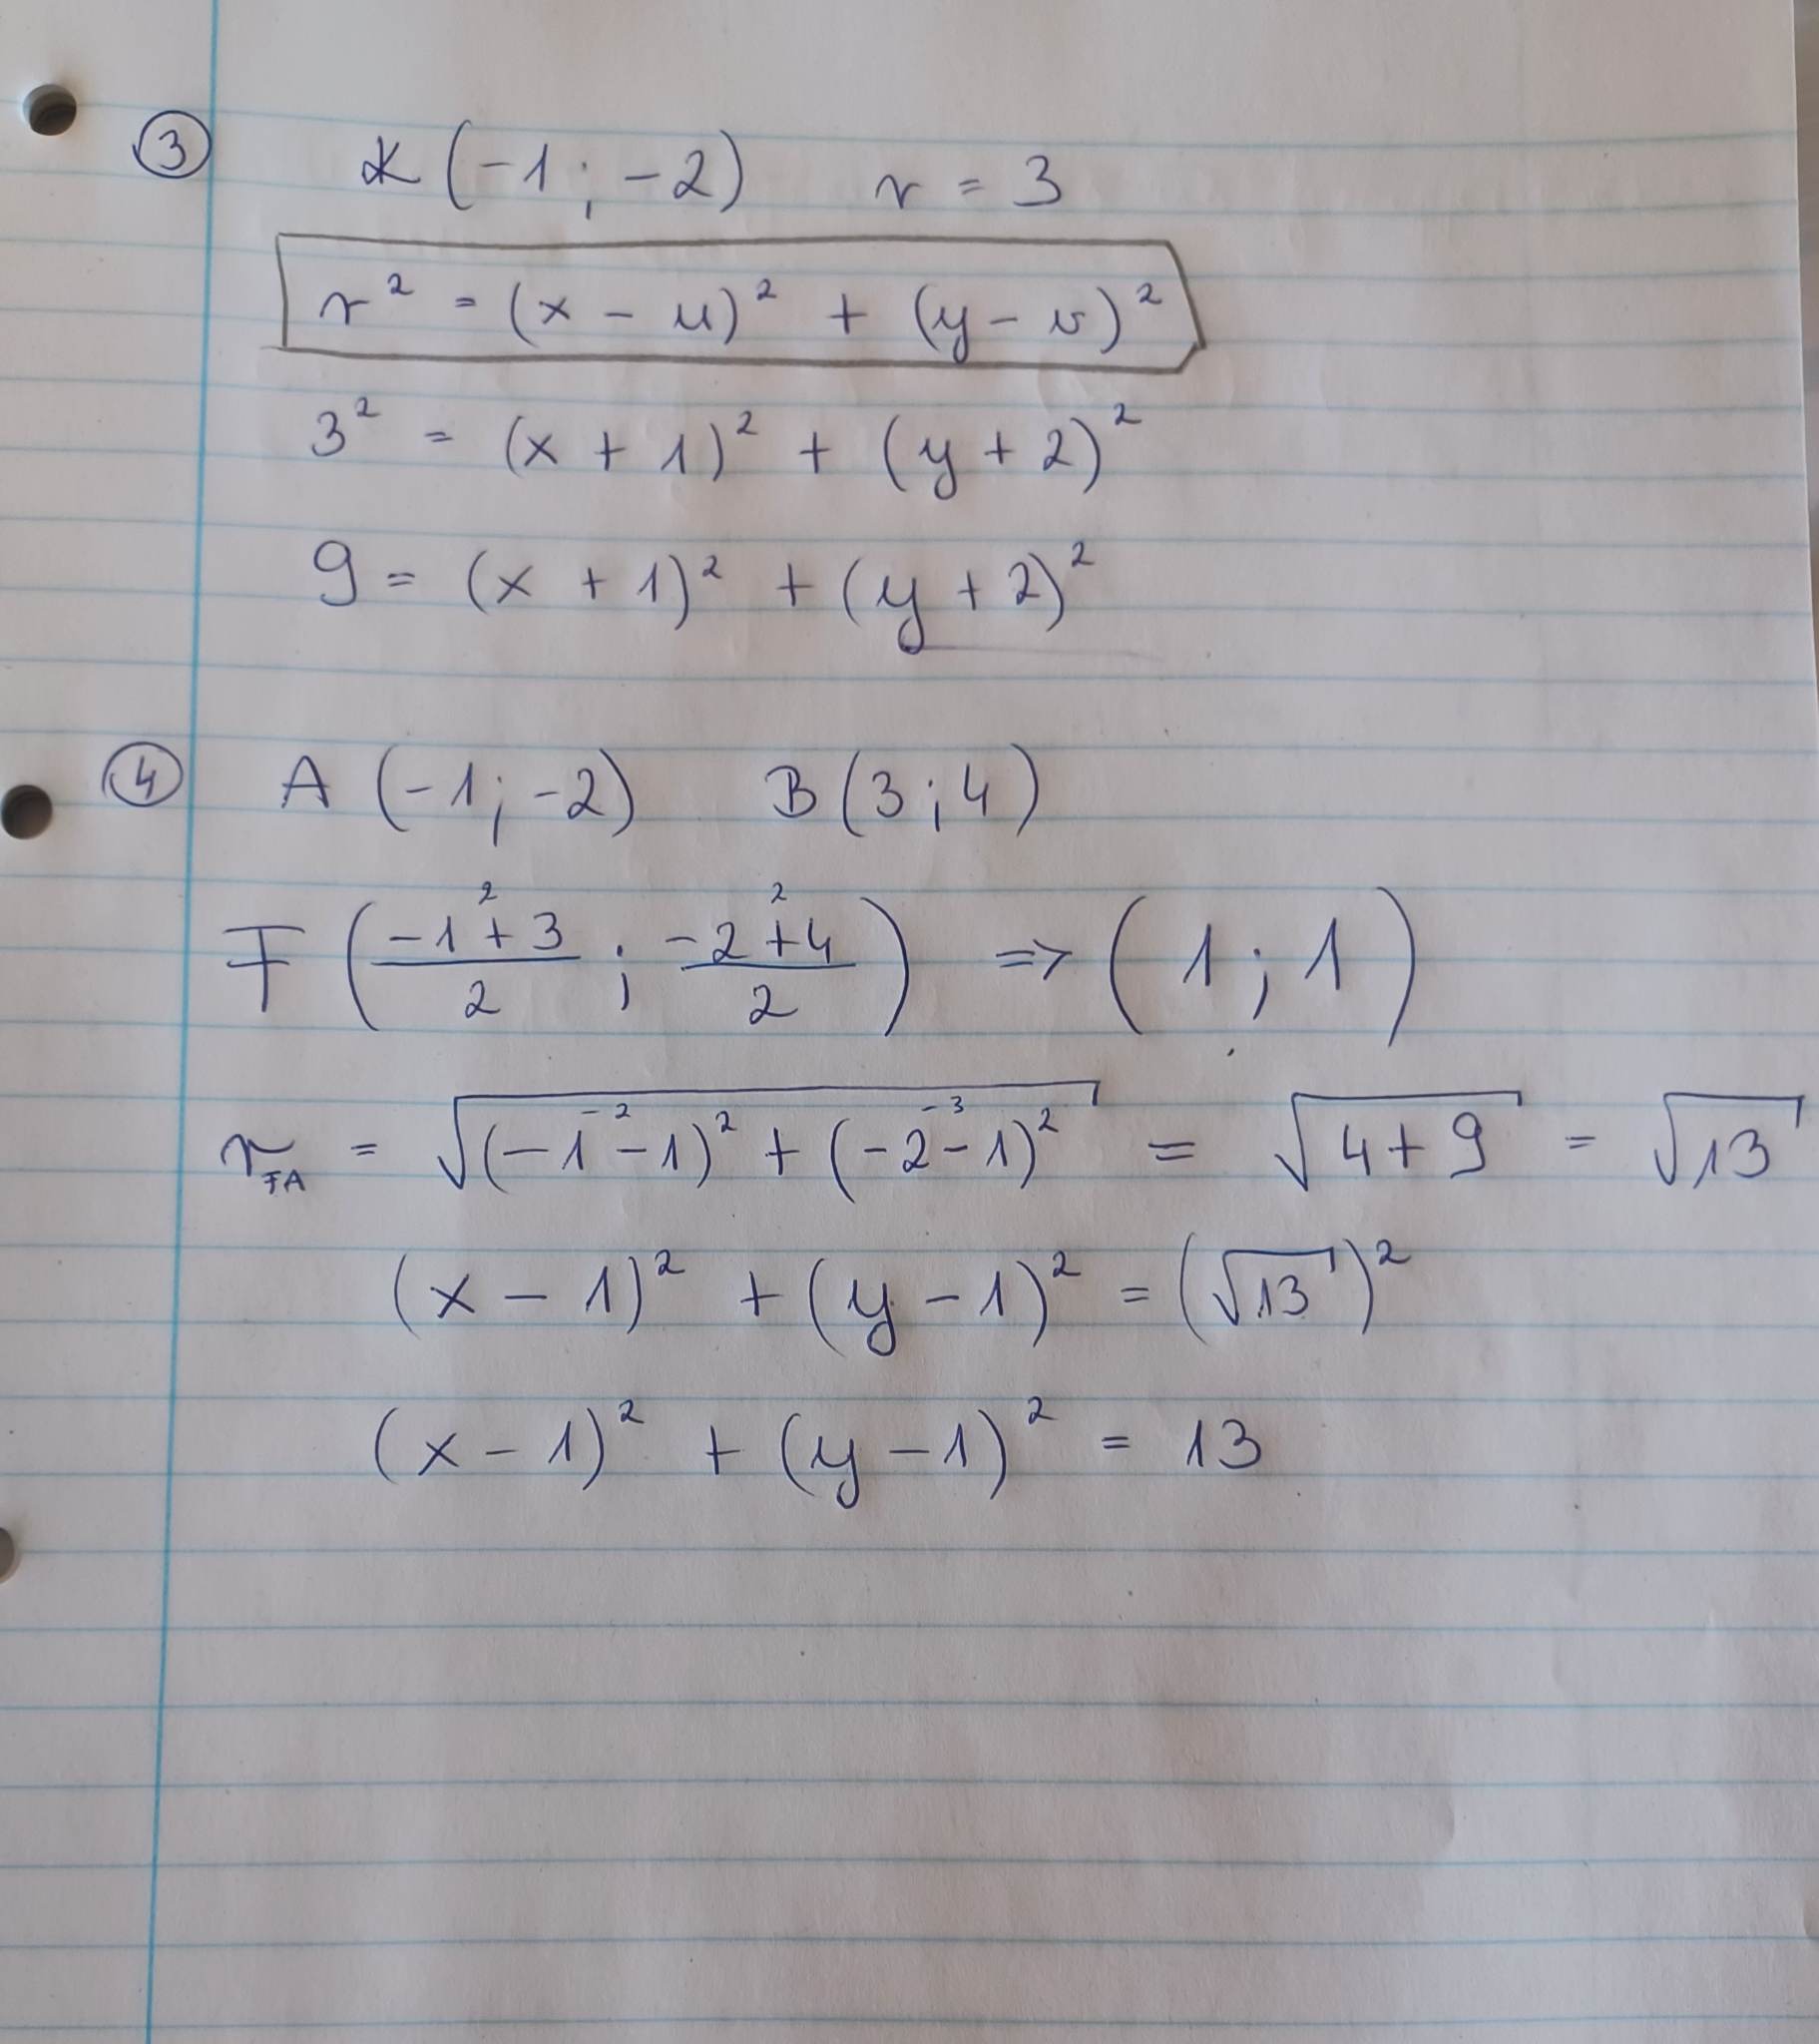 ③ K (-1 ; -2) r = 3
r² = (x - u)² + (y - v)²
3² = (x + 1)² + (y + 2)²
9 = (x + 1)² + (y + 2)²
④ A (-1 ; -2) B (3 ; 4)
2 2
F ( (-1 + 3)/2 ; (-2 + 4)/2 ) => (1 ; 1)
-2 -3
r_FA = √((-1 - 1)² + (-2 - 1)²) = √(4 + 9) = √13
(x - 1)² + (y - 1)² = (√13)²
(x - 1)² + (y - 1)² = 13